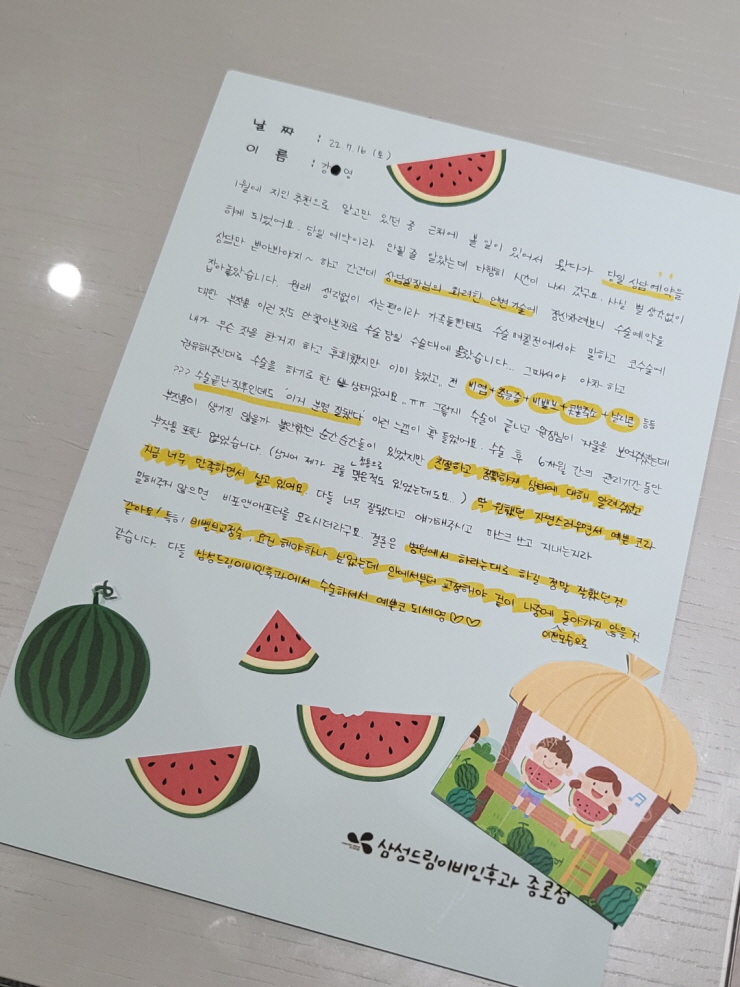 날 짜 : 22. 7. 16 (토)
이 름 : 강 영
1월에 지인 추천으로 알고만 있던 중 근처에 볼 일이 있어서 왔다가 당일 상담예약을
하게 되었어요. 당일 예약이라 안될 줄 알았는데 다행히 시간이 나서 갔구요. 사실 별 생각없이
상담만 받아봐야지~ 하고 간건데 상담실장님의 화려한 언변 기술에 정신차려보니 수술예약을
잡아놓았습니다. 원래 생각없이 사는편이라 가족들한테도 수술 며칠전에서야 말하고 코수술에
대한 부작용 이런것도 안찾아본채로 수술 당일 수술대에 올랐습니다.. 그때서야 아차 하고
내가 무슨 짓을 한거지 하고 후회했지만 이미 늦었고.. 전 비염+축농증+비밸브+콧볼축소+ 등등
권유해주신대로 수술을 하기로 한 상태였어요..ㅠㅠ 그렇게 수술이 끝나고 원장님이 거울을 보여주셨는데
>>> 수술끝난 직후인데도 '이거 분명 잘됐다' 이런 느낌이 확 들었어요. 수술 후 6개월 간의 관리기간 동안
부작용이 생기진 않을까 불안했던 순간순간들이 있었지만 친절하고 정확하게 상태에 대해 알려주셨고
부작용 또한 없었습니다 (심지어 제가 코를 정통으로 맞은적도 있었는데도요..) 딱 원했던 자연스러우면서 예쁜 코라
지금 너무 만족하면서 살고 있어요. 다들 너무 잘됐다고 얘기해주시고 마스크 쓰고 지내는지라
말해주지 않으면 비포앤애프터를 모르시더라구요. 결론은 병원에서 하라는대로 하길 정말 잘했던 것
같아요! 특히 비밸브교정술, 요건 해야하나 싶었는데 안에서부터 교정해야 겉이 나중에 이전모습으로 돌아가지 않을 것
같습니다. 다들 삼성드림이비인후과에서 수술하셔서 예쁜코 되세영♡♡
삼성드림이비인후과 종로점